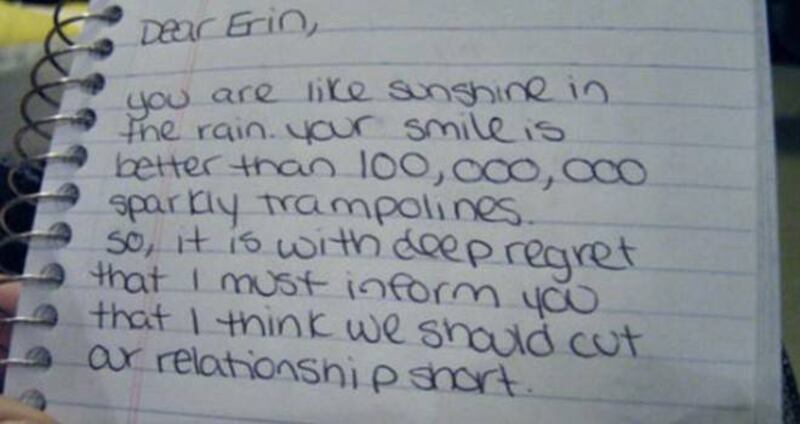 Dear Erin,
you are like sunshine in
the rain. your smile is
better than 100,000,000
sparkly trampolines.
so, it is with deep regret
that I must inform you
that I think we should cut
our relationship short.